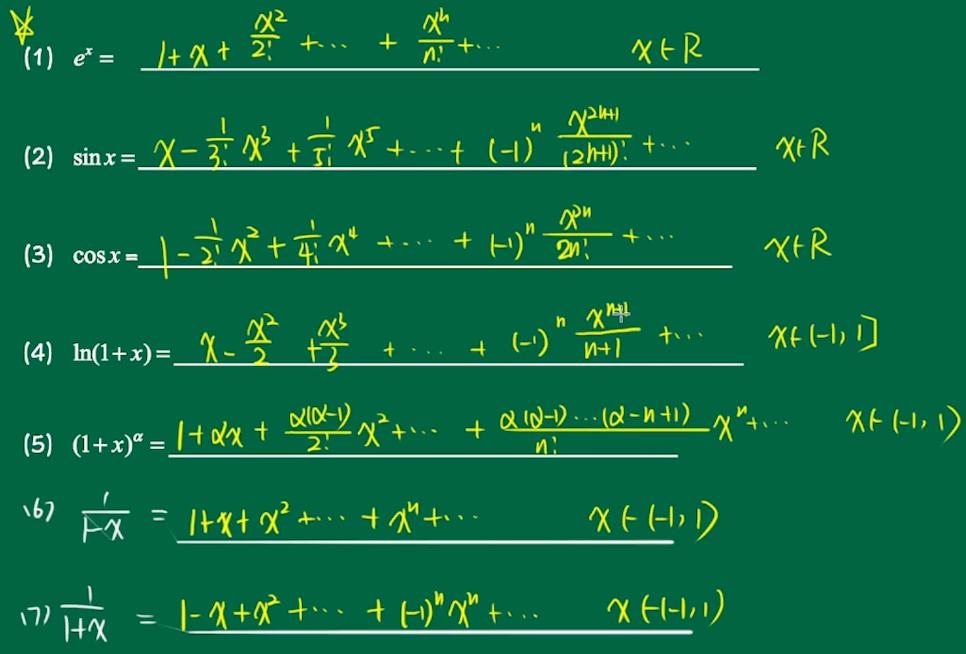 ☆
(1) e^x = 1+x+\frac{x^2}{2!}+⋯+\frac{x^n}{n!}+⋯ x∈R
(2) sin x = x-\frac{1}{3!}x^3+\frac{1}{5!}x^5+⋯+(-1)^n\frac{x^{2n+1}}{(2n+1)!}+⋯ x∈R
(3) cos x = 1-\frac{1}{2!}x^2+\frac{1}{4!}x^4+⋯+(-1)^n\frac{x^{2n}}{2n!}+⋯ x∈R
(4) ln(1+x) = x-\frac{x^2}{2}+\frac{x^3}{3}+⋯+(-1)^n\frac{x^{n+1}}{n+1}+⋯ x∈(-1,1]
(5) (1+x)^α = 1+αx+\frac{α(α-1)}{2!}x^2+⋯+\frac{α(α-1)⋯(α-n+1)}{n!}x^n+⋯ x∈(-1,1)
(6) \frac{1}{1-x} = 1+x+x^2+⋯+x^n+⋯ x∈(-1,1)
(7) \frac{1}{1+x} = 1-x+x^2+⋯+(-1)^n x^n+⋯ x∈(-1,1)